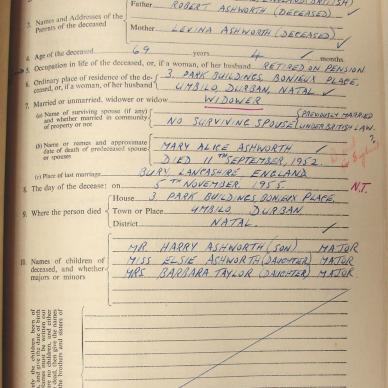 3. Names and Addresses of the Parents of the deceased
Father ROBERT ASHWORTH (DECEASED)
Mother LEVINA ASHWORTH (DECEASED)
4. Age of the deceased 69 years 4 months
5. Occupation in life of the deceased, or, if a woman, of her husband RETIRED ON PENSION
6. Ordinary place of residence of the de-
ceased, or, if a woman, of her husband
3. PARK BUILDINGS, BONIEUX PLACE,
UMBILO, DURBAN, NATAL
7. Married or unmarried, widower or widow WIDOWER
(a) Name of surviving spouse (if any)
and whether married in community
of property or not
NO SURVIVING SPOUSE (PREVIOUSLY MARRIED
UNDER BRITISH LAW.
(b) Name or names and approximate
date of death of predeceased spouse
or spouses
MARY ALICE ASHWORTH
DIED 11TH SEPTEMBER, 1952.
(c) Place of last marriage BURY, LANCASHIRE ENGLAND
8. The day of the deceased: on 5TH NOVEMBER, 1955. N.T.
9. Where the person died
House 3. PARK BUILDINGS BONIEUX PLACE,
Town or Place UMBILO DURBAN
District NATAL.
10. Names of children of
deceased, and whether
majors or minors
MR HARRY ASHWORTH (SON) MAJOR
MISS ELSIE ASHWORTH (DAUGHTER) MAJOR
MRS BARBARA TAYLOR (DAUGHTER) MAJOR